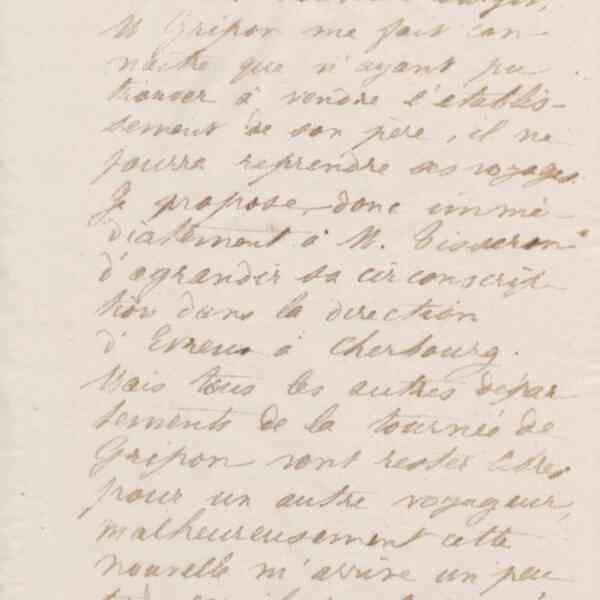 M Gripon me fait con-
naitre que n'ayant pu
trouver à vendre l'établis-
sement de son père, il ne
pourra reprendre ses voyages.
Je propose donc immé-
diatement à M. Tisseron
d'agrandir sa circonscrip-
tion dans la direction
d'Evreux à Cherbourg.
Mais tous les autres dépar
tements de la tournée de
Gripon vont rester libres
pour un autre voyageur,
malheureusement cette
nouvelle m'arrive un peu